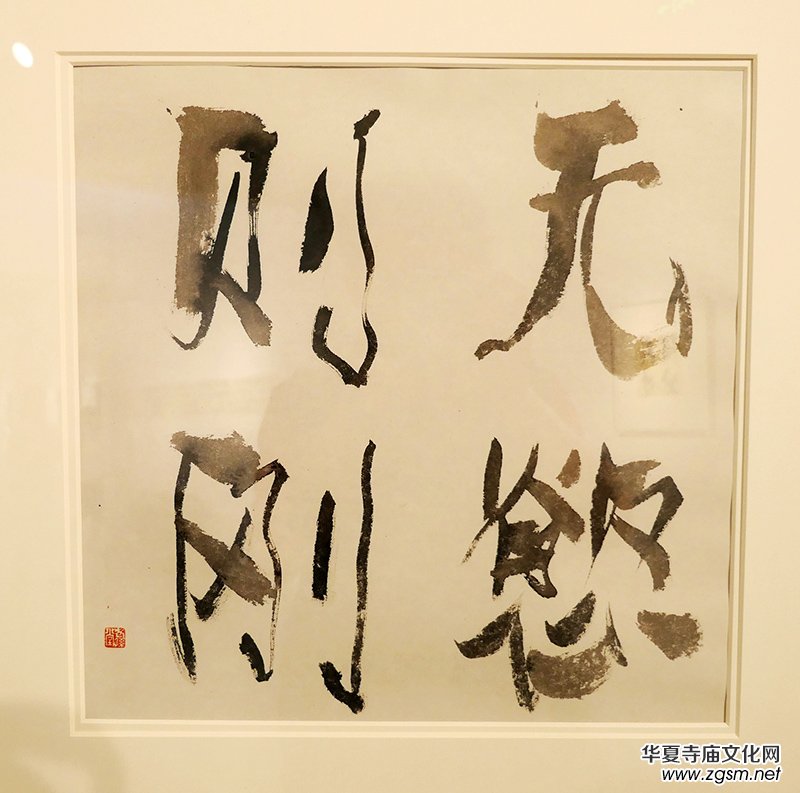 无慾
则刚
华夏寺庙文化网
www.zgsm.net